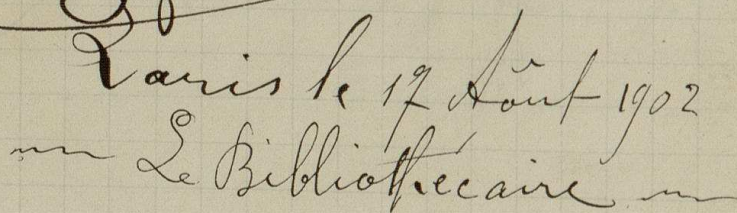 Paris le 17 Août 1902
Le Bibliothécaire